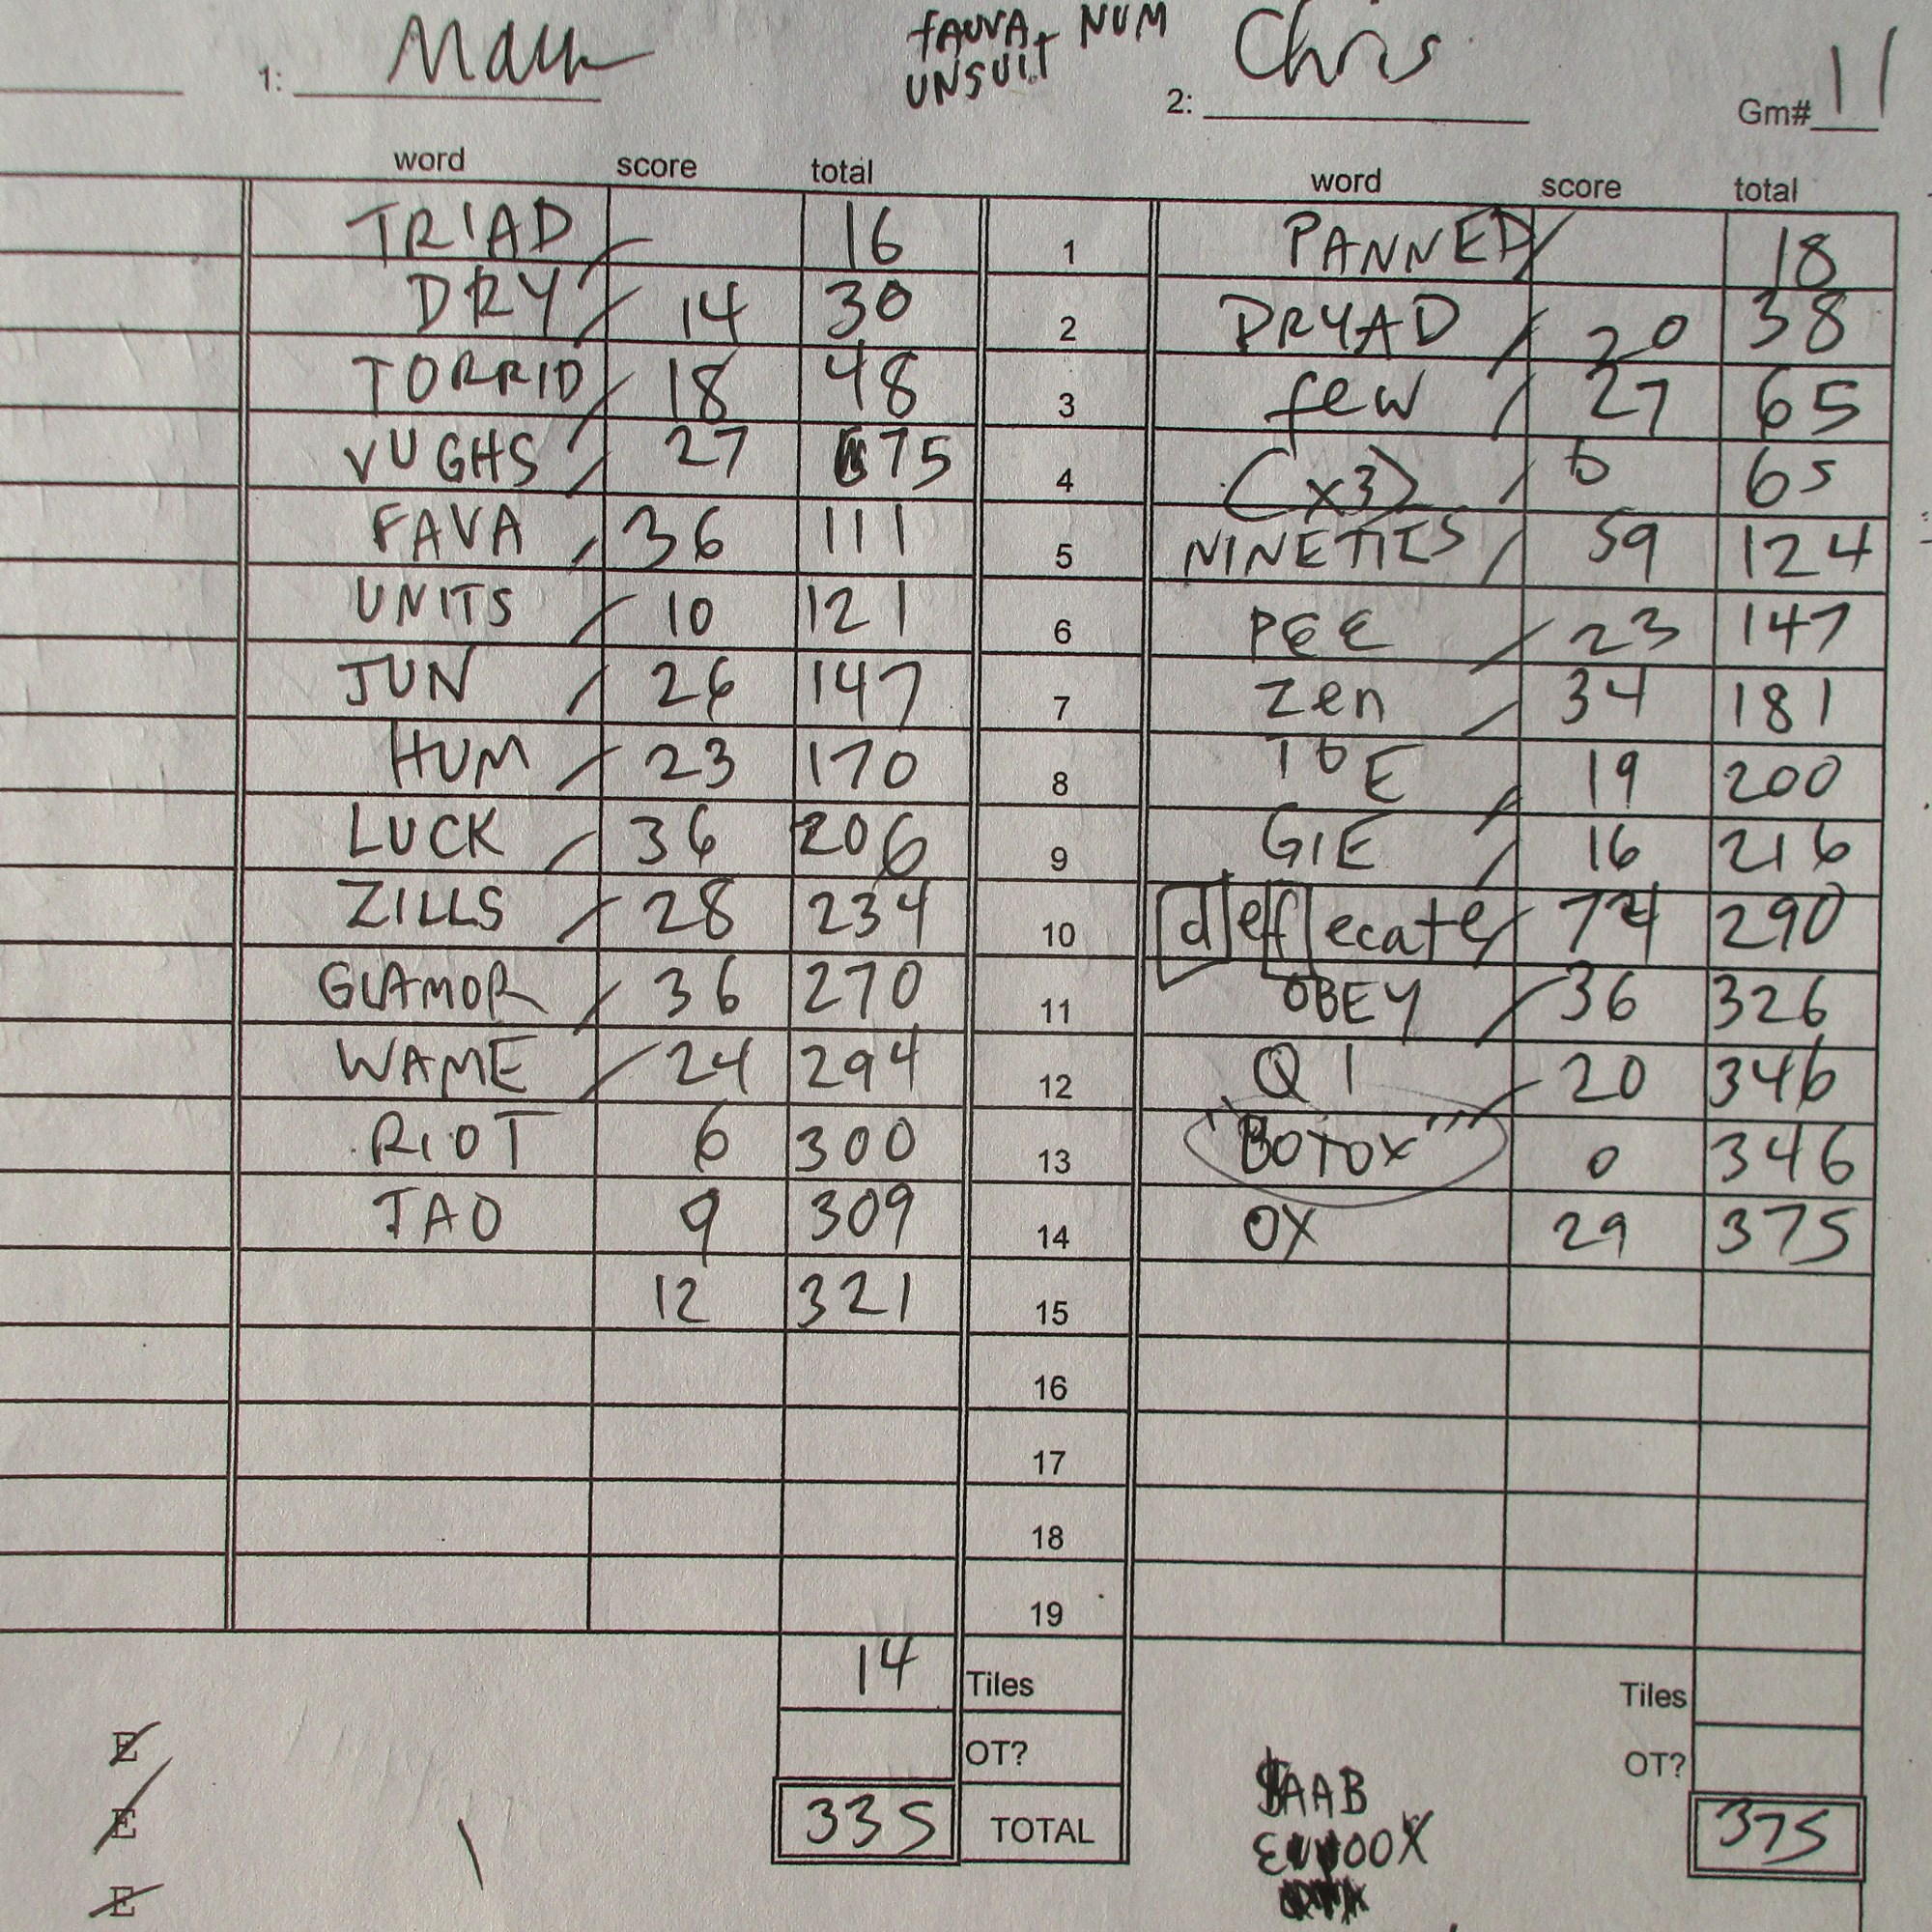 fAUVA NUM
UNSUIT
1: Mark
2: Chris
Gm# 11
word score total word score total
TRIAD 16 1 PANNED 18
DRY 14 30 2 DRYAD 20 38
TORRID 18 48 3 few 27 65
VUGHS 27 75 4 (x3) 0 65
FAVA 36 111 5 NINETIES 59 124
UNITS 10 121 6 PEE 23 147
JUN 26 147 7 Zen 34 181
HUM 23 170 8 TOE 19 200
LUCK 36 206 9 GIE 16 216
ZILLS 28 234 10 deflecate 74 290
GLAMOR 36 270 11 OBEY 36 326
WAME 24 294 12 QI 20 346
RIOT 6 300 13 "BOTOX" 0 346
TAO 9 309 14 OX 29 375
12 321 15
16
17
18
19
14 Tiles Tiles
E OT? OT?
E 335 TOTAL 375
E
AAB